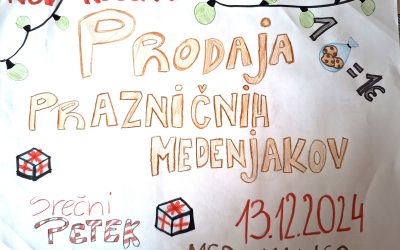 PRODAJA
1 = 1€
PRAZNIČNIH
MEDENJAKOV
SREČNI
PETEK
13.12.2024